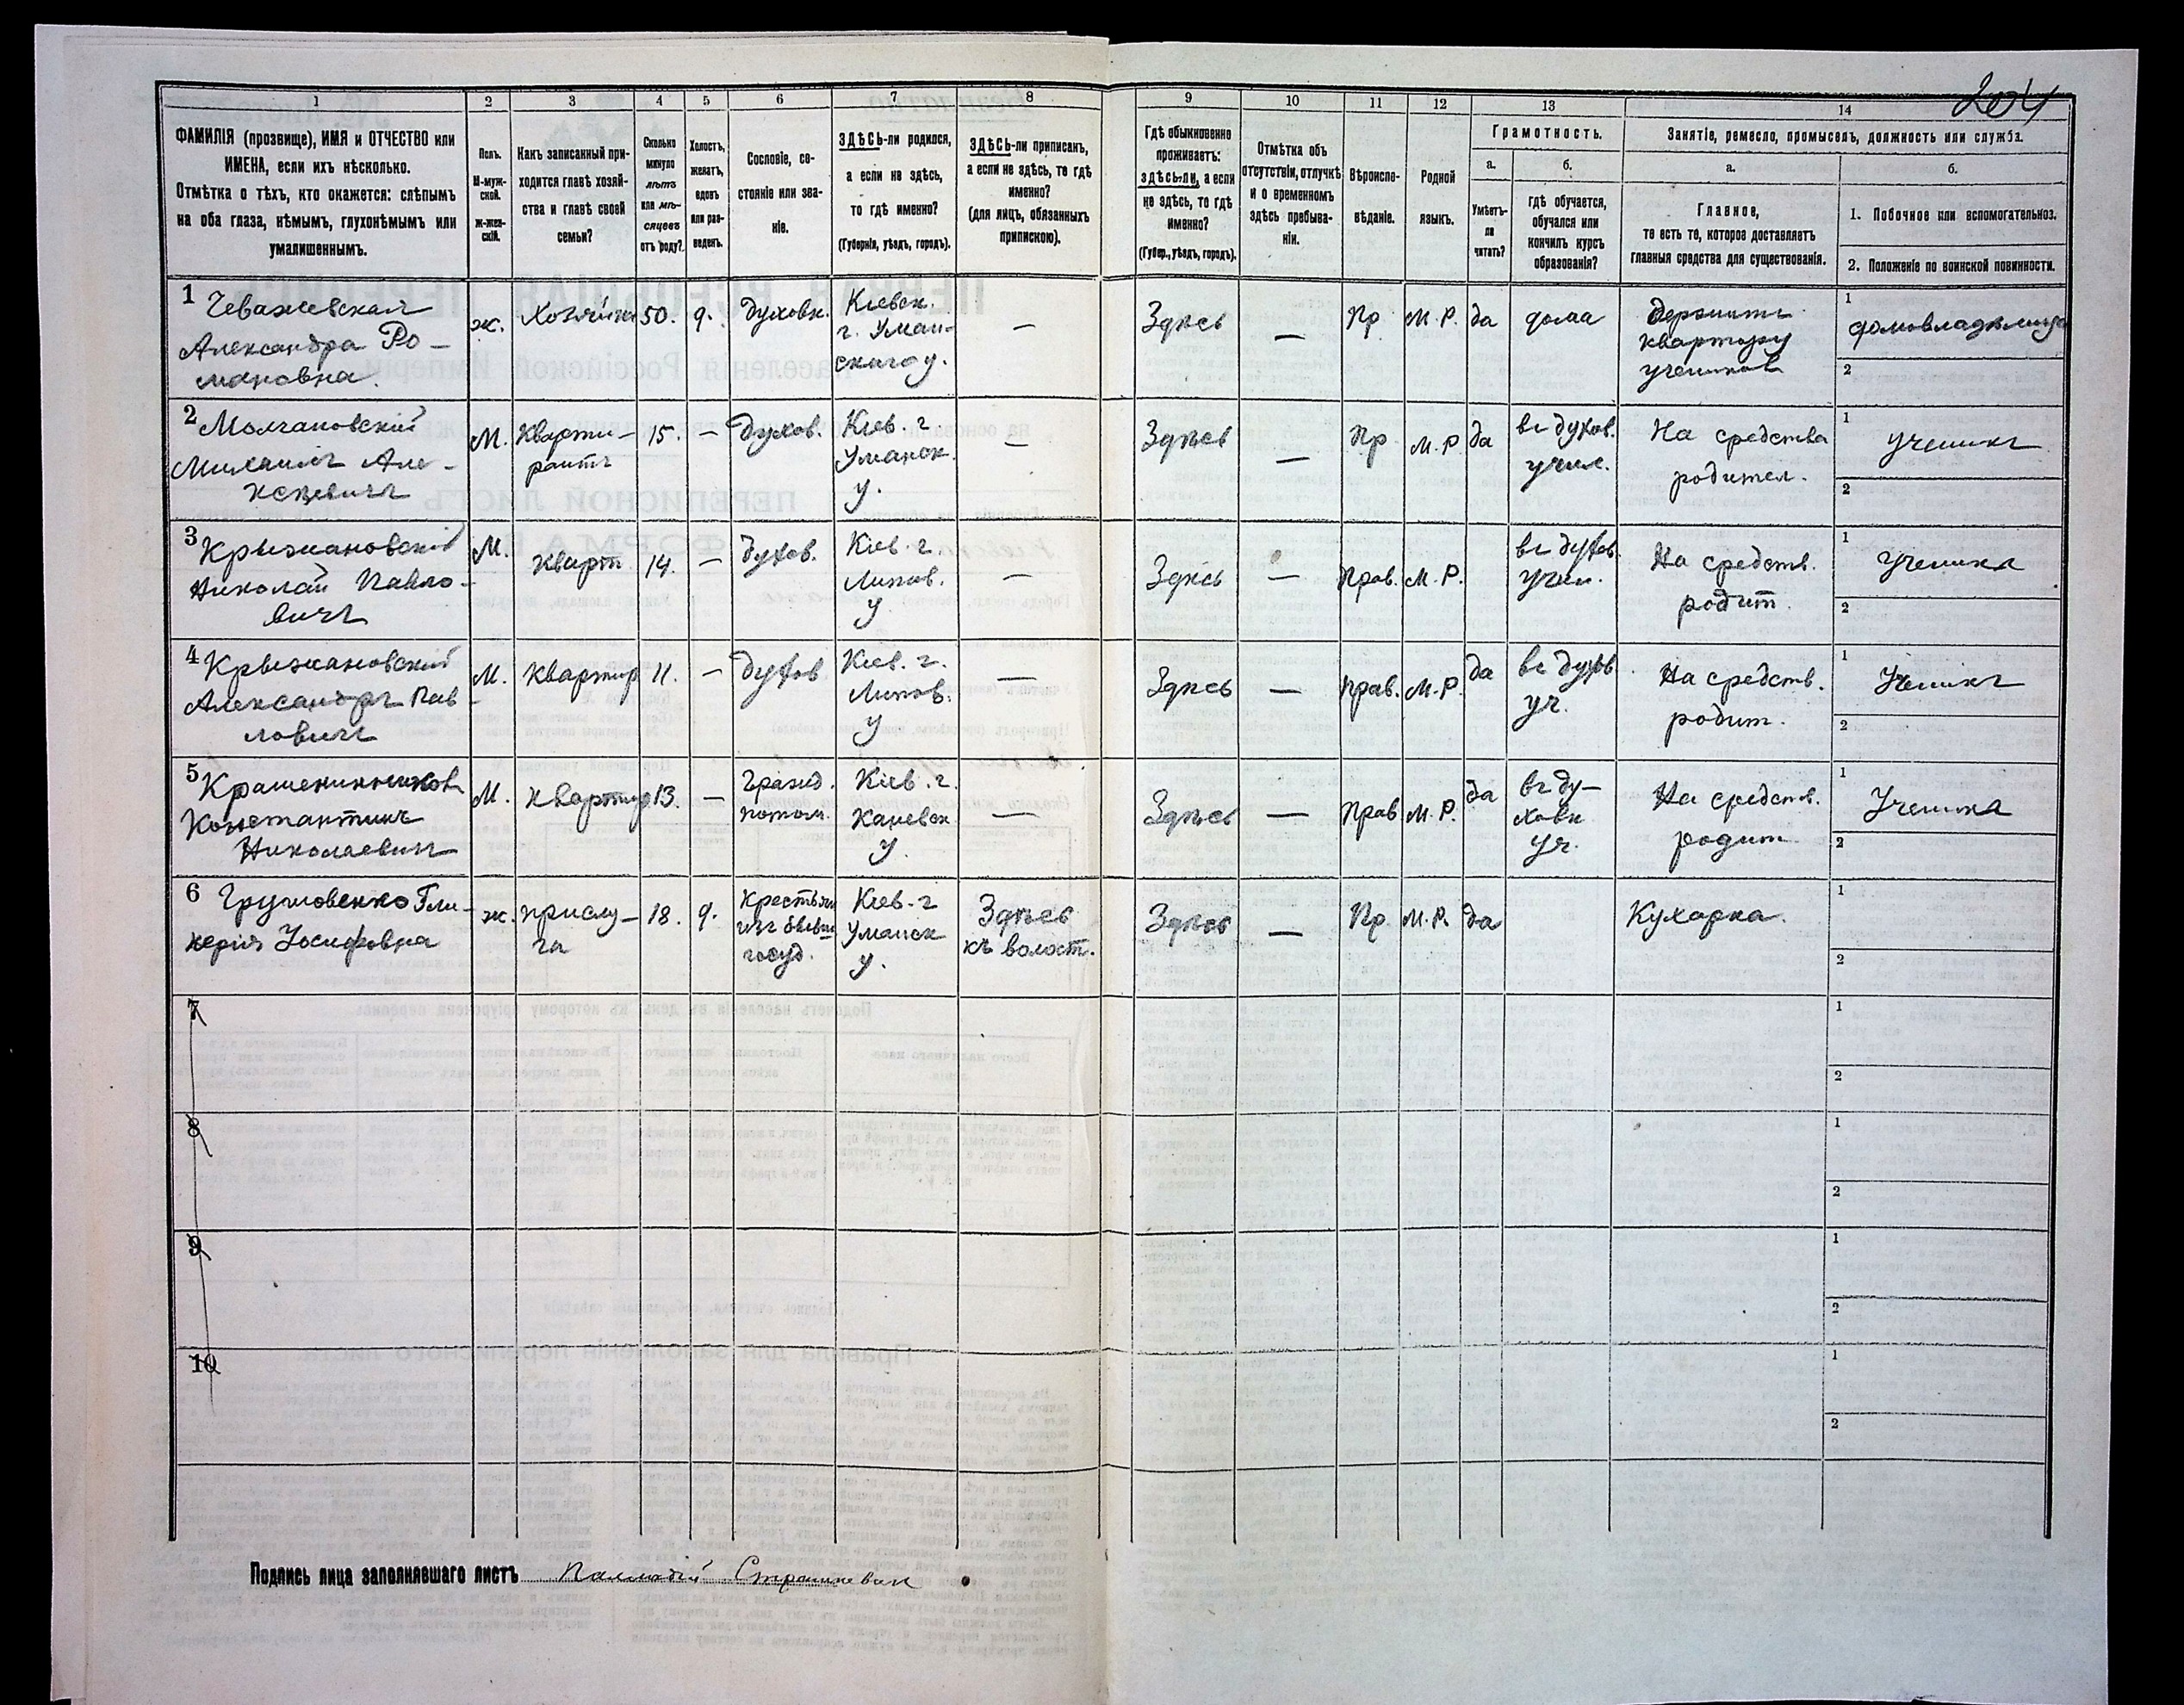 204
1 2 3 4 5 6 7 8 9 10 11 12 13 14
ФАМИЛІЯ (прозвище), ИМЯ и ОТЧЕСТВО или
ИМЕНА, если ихъ нѣсколько.
Отмѣтка о тѣхъ, кто окажется: слѣпымъ
на оба глаза, нѣмымъ, глухонѣмымъ или
умалишеннымъ.
Полъ.
М-муж-
ской.
Ж-жен-
скій.
Какъ записанный при-
ходится главѣ хозяй-
ства и главѣ своей
семьи?
Сколько
минуло
лѣтъ
или мѣ-
сяцевъ
отъ роду?
Холостъ,
женатъ,
вдовъ
или раз-
веденъ.
Сословіе, со-
стояніе или зва-
ніе.
ЗДѢСЬ-ли родился,
а если не здѣсь,
то гдѣ именно?
(Губернія, уѣздъ, городъ).
ЗДѢСЬ-ли приписанъ,
а если не здѣсь, то гдѣ
именно?
(для лицъ, обязанныхъ
припискою).
Гдѣ обыкновенно
проживаетъ:
здѣсь-ли, а если
не здѣсь, то гдѣ
именно?
(Губер., уѣздъ, городъ).
Отмѣтка объ
отсутствіи, отлучкѣ
и о временномъ
здѣсь пребыва-
ніи.
Вѣроиспо-
вѣданіе.
Родной
языкъ.
Грамотность.
а.
Умѣетъ-
ли
читать?
б.
гдѣ обучается,
обучался или
кончилъ курсъ
образованія?
Занятіе, ремесло, промыселъ, должность или служба.
а.
Главное,
то есть то, которое доставляетъ
главныя средства для существованія.
б.
1. Побочное или вспомогательное.
2. Положеніе по воинской повинности.
1
Чеважевская
Александра Ро-
мановна.
ж.
Хозяйка
50.
д.
духовн.
Кіевск.
г. Уман-
скаго у.
—
Здѣсь
—
Пр
М. Р.
да
дома
Держитъ
квартиру
учениковъ
1
домовладѣлица
2
2
Молчановскій
Михаилъ Але-
ксѣевичъ
М.
Кварти-
рантъ
15.
—
духов.
Кіев. г.
Уманск.
у.
—
Здѣсь
—
Пр
М. Р
да
въ духов.
учил.
На средства
родител.
1
ученикъ
2
3
Крыжановскій
Николай Павло-
вичъ
М.
Кварт.
14.
—
духов.
Кіев. г.
Липов.
у
—
Здѣсь
—
Прав.
М. Р.
въ духов.
учил.
На средств.
родит.
1
Ученикъ
2
4
Крыжановскій
Александръ Пав-
ловичъ
М.
Квартир
11.
—
духов
Кіев. г.
Липов.
у
—
Здѣсь
—
Прав.
М. Р.
да
въ духов.
уч.
На средств.
родит.
1
Ученикъ
2
5
Крашенинниковъ
Константинъ
Николаевичъ
М.
Квартир
13.
—
Гражд.
потом.
Кіев. г.
Каневск
у.
—
Здѣсь
—
Прав
М. Р.
да
въ ду-
ховн
уч.
На средств.
родит.
1
Ученикъ
2
6
Гли-
керія Іосифовна
ж.
прислу-
га
18.
д.
Крестьян
изъ бывш
госуд.
Кіев. г
Уманск
у.
Здѣсь
къ волост.
Здѣсь
—
Пр.
М. Р.
да
Кухарка.
1
2
7
1
2
8
1
2
9
1
2
10
1
2
Подпись лица заполнявшаго листъ Палладій Страшкевич